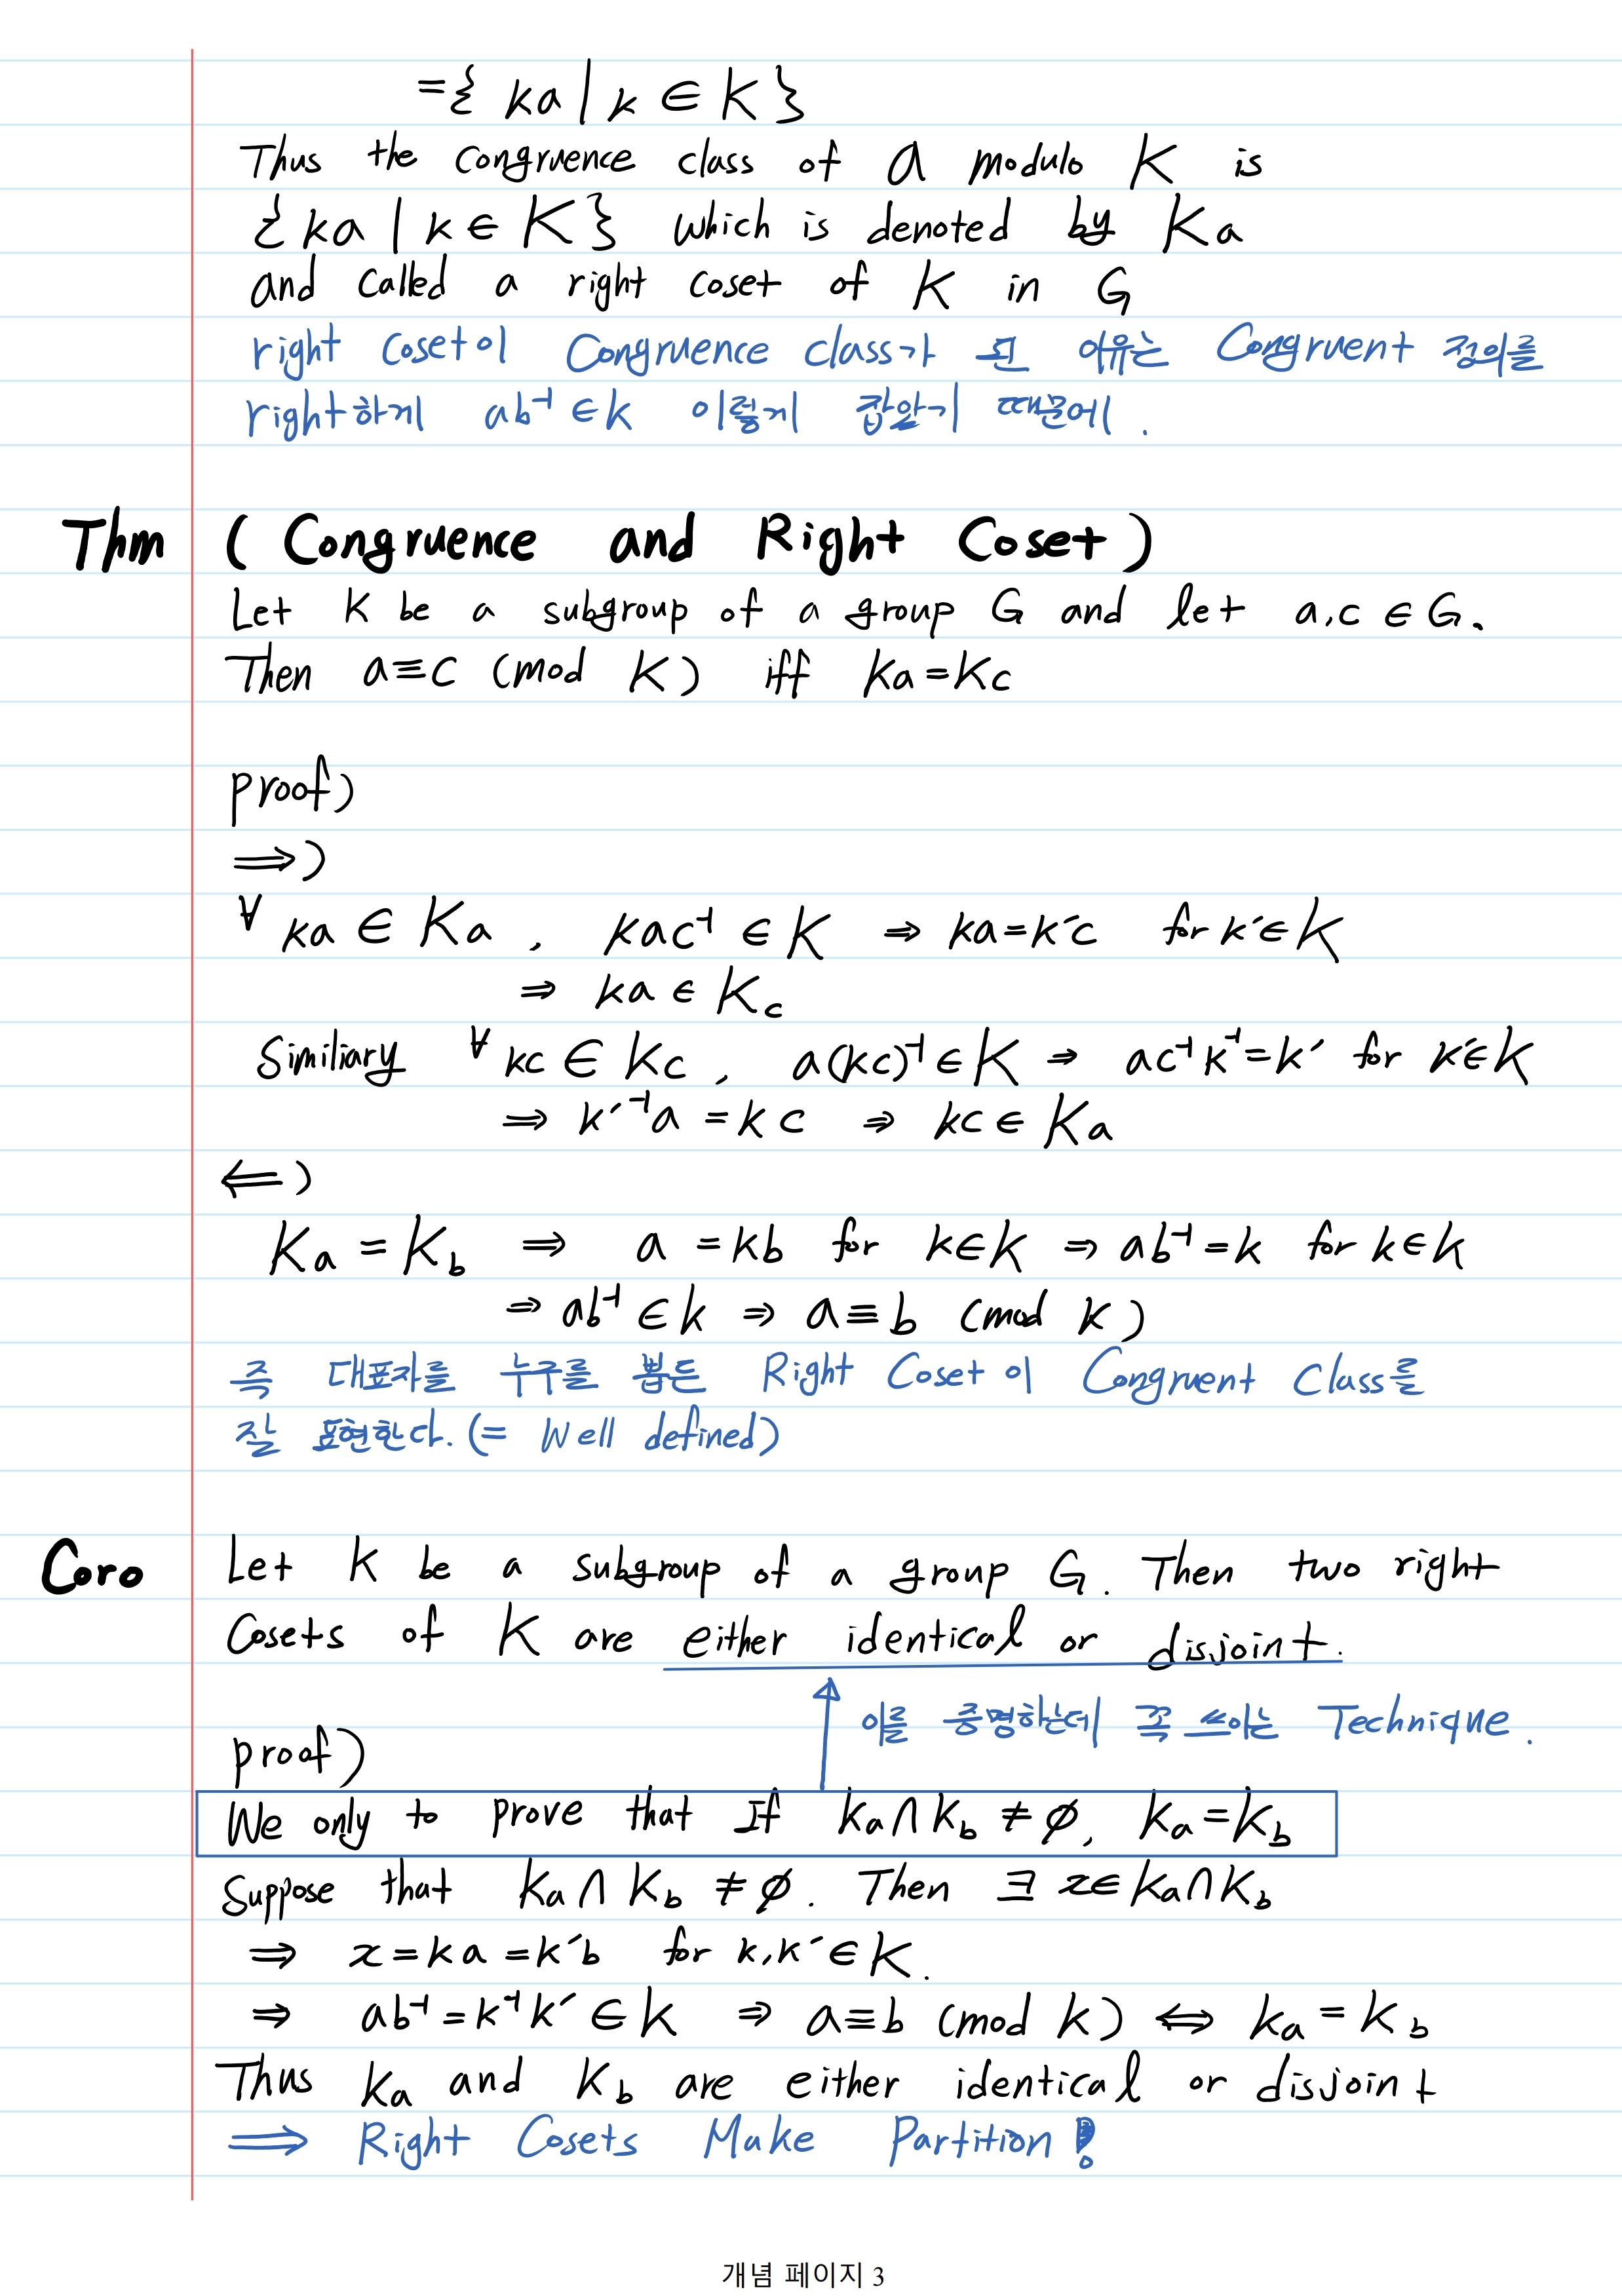 ={ ka | k ∈ K }
Thus the congruence class of a modulo K is
{ ka | k ∈ K } which is denoted by Ka
and called a right coset of K in G
right coset이 Congruence class가 된 이유는 Congruent 정의를
right하게 ab⁻¹ ∈ K 이렇게 잡았기 때문에.
Thm ( Congruence and Right Coset )
Let K be a subgroup of a group G and let a,c ∈ G.
Then a≡c (mod K) iff Ka=Kc
proof)
⇒)
∀ ka ∈ Ka , kac⁻¹ ∈ K ⇒ ka=k′c for k′∈K
⇒ ka ∈ Kc
Similiary ∀ kc ∈ Kc , a(kc)⁻¹ ∈ K ⇒ ac⁻¹k⁻¹=k′ for k′∈K
⇒ k′⁻¹a = kc ⇒ kc ∈ Ka
⇐)
Ka = Kb ⇒ a = kb for k∈K ⇒ ab⁻¹=k for k∈K
⇒ ab⁻¹ ∈ K ⇒ a≡b (mod K)
즉 대표자를 누구를 뽑든 Right Coset이 Congruent Class를
잘 표현한다. (= Well defined)
Coro Let K be a subgroup of a group G. Then two right
Cosets of K are either identical or disjoint.
이를 증명하는데 꼭 쓰이는 Technique.
proof)
We only to prove that If Ka∩Kb ≠ ∅, Ka=Kb
Suppose that Ka∩Kb ≠ ∅. Then ∃ x∈Ka∩Kb
⇒ x=ka=k′b for k,k′∈K.
⇒ ab⁻¹=k⁻¹k′∈K ⇒ a≡b (mod K) ⇔ Ka=Kb
Thus Ka and Kb are either identical or disjoint
⇒ Right Cosets Make Partition!
개념 페이지 3